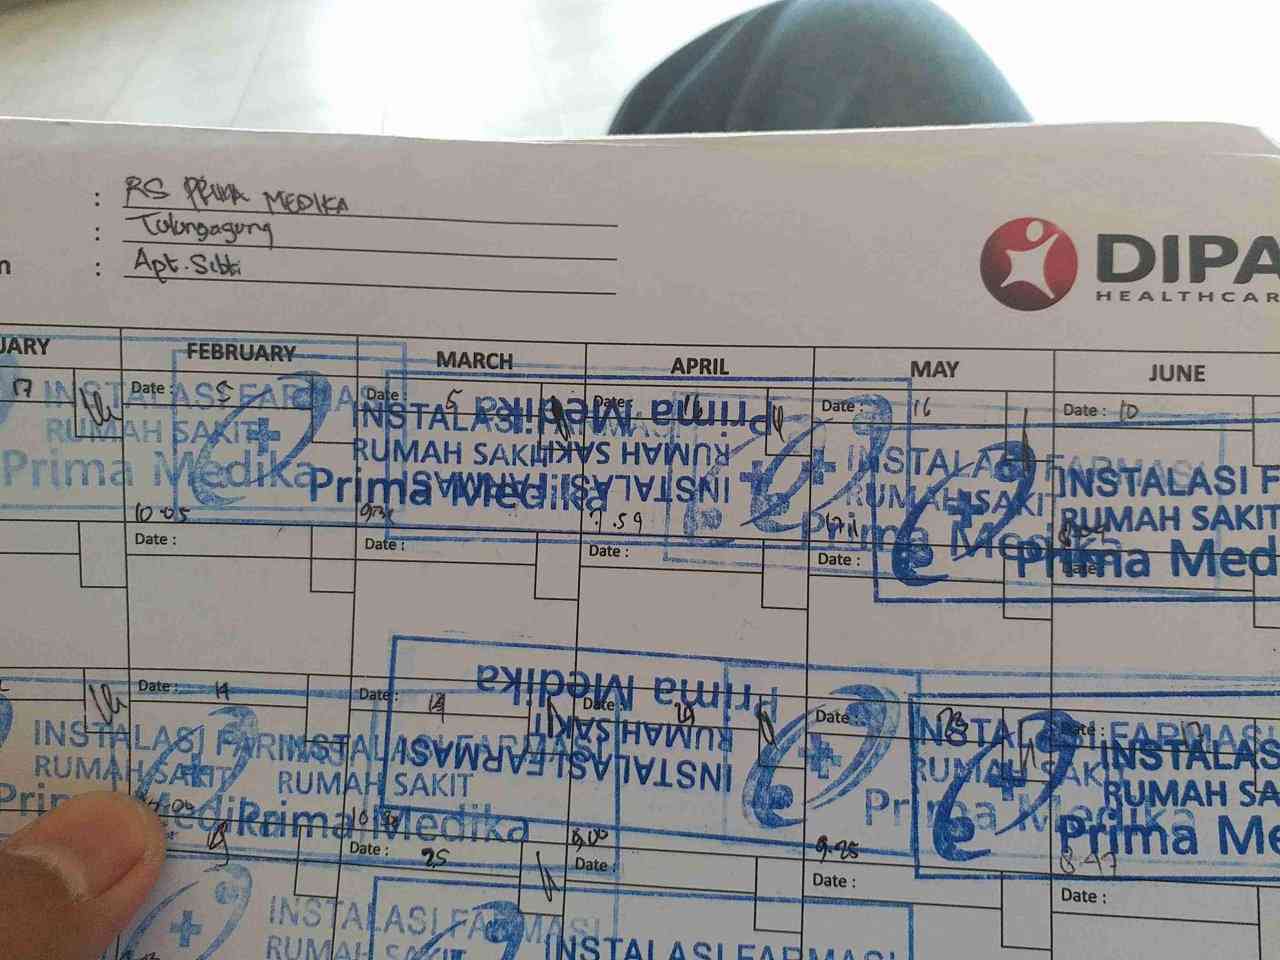 : RS PRIMA MEDIKA
: Tulungagung
n : Apt. Sibti
DIPA
HEALTHCAR
UARY FEBRUARY MARCH APRIL MAY JUNE
17 Date : 5 Date : 5 Date : 16 Date : 16 Date : 10
INSTALASI FARMASI
RUMAH SAKIT
Prima Medika
INSTALASI
RUMAH SAKIT
Prima Medika
Prima Medika
RUMAH SAKIT
INSTALASI FARMASI
INSTALASI FARMASI
RUMAH SAKIT
Prima Medika
INSTALASI F
RUMAH SAKIT
Prima Med
10.05 7.59
Date : Date : Date : Date : Date :
Date : 19 Date : Date : 29 Date : 23 Date : 17
INSTALASI FARMASI
RUMAH SAKIT
Prima Medika
INSTALASI FARMASI
RUMAH SAKIT
Prima Medika
Prima Medika
RUMAH SAKIT
INSTALASI FARMASI
INSTALASI FARMASI
RUMAH SAKIT
Prima Medika
INSTALASI
RUMAH SA
Prima Me
8.00 9.25 8.47
Date : 25 Date : Date : Date :
INSTALASI FARMASI
RUMAH SAKIT
INSTALASI FARMASI